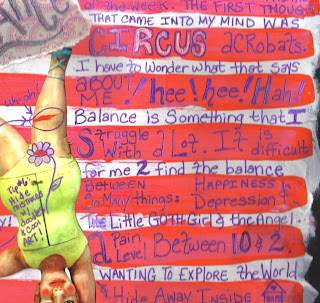 of the week. THE FIRST THOUG
THAT CAME INTO MY MIND WAS
CIRCUS acRobats.
I have to Wonder what that says
ABOUT ME! hee! hee! Hah!
uh-oh!
Balance is Something that I
Struggle With a Lot. It is difficult
for me 2 find the balance
BETWEEN HAPPINESS &
So Many things: Depression.
The Little GOTH Girl & the Angel.
a Pain Level Between 10 & 2.
WANTING TO EXPLORE the World
& Hide Away Inside